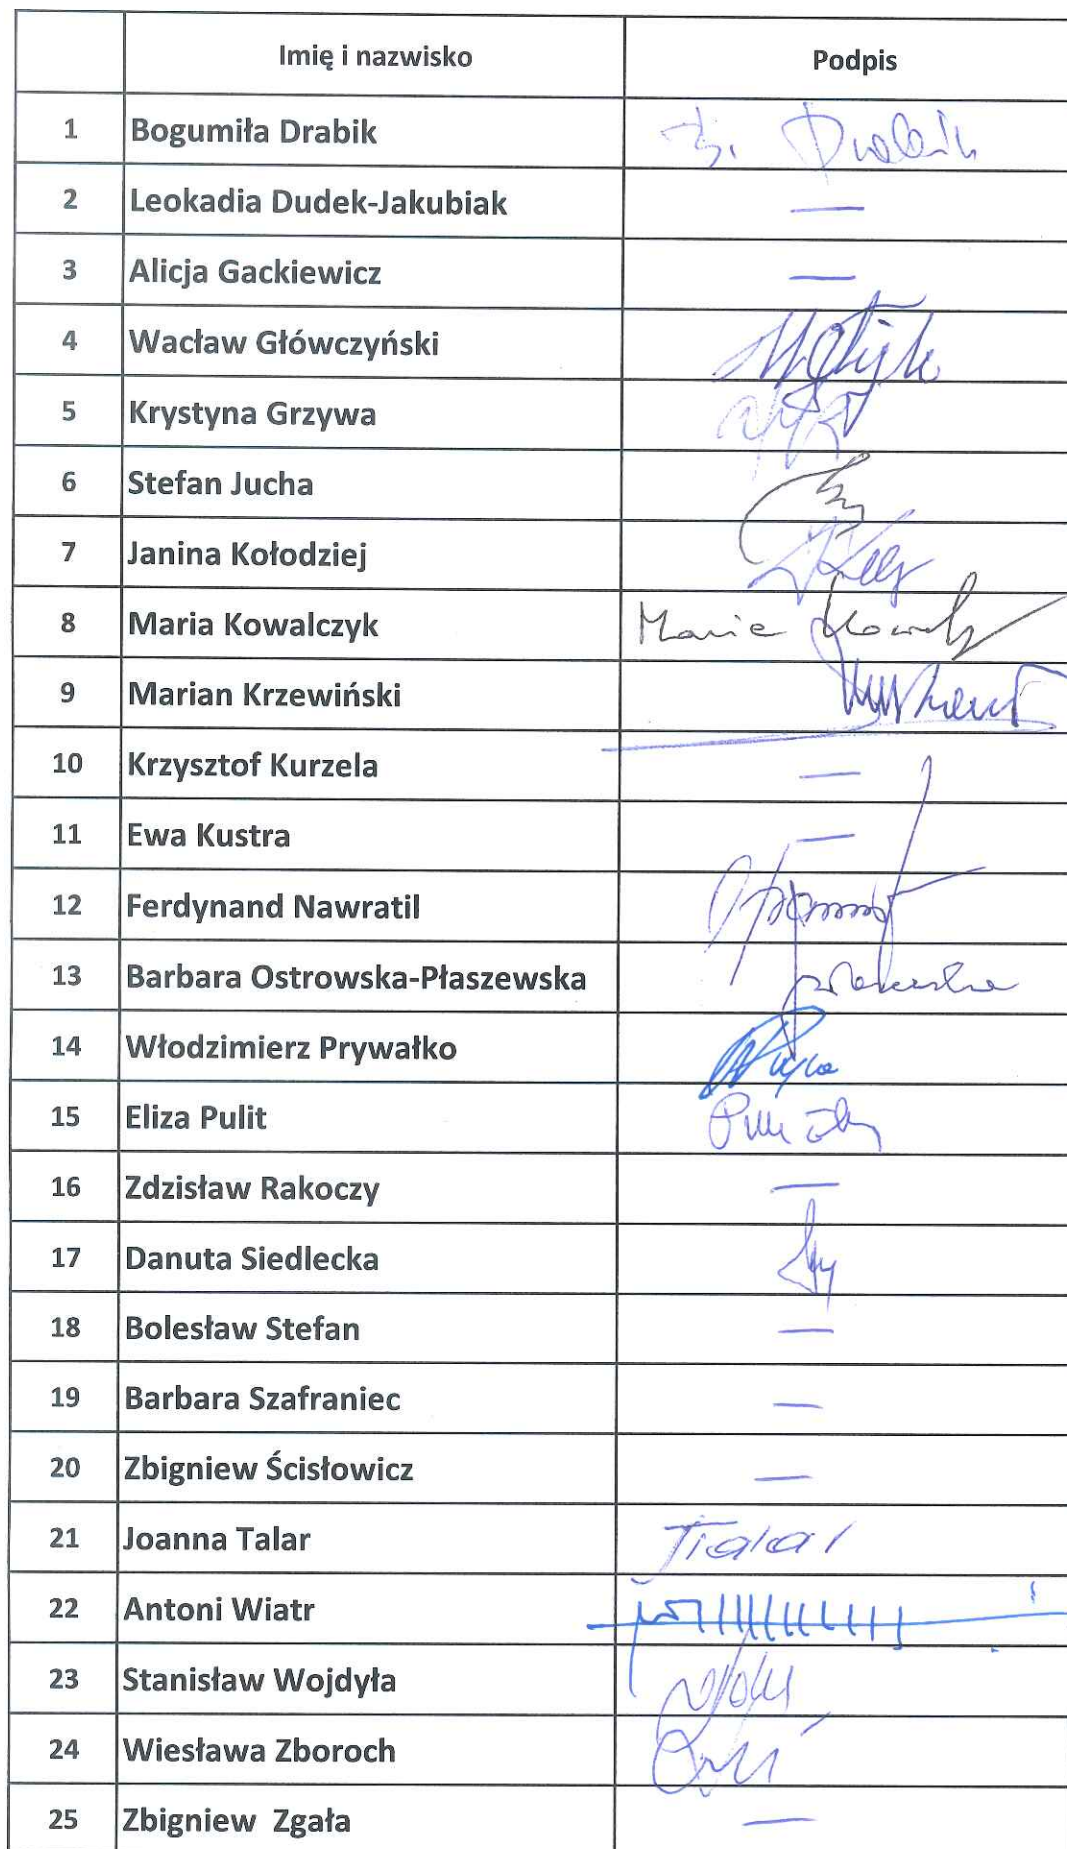 Imię i nazwisko Podpis
1 Bogumiła Drabik B. Drabik
2 Leokadia Dudek-Jakubiak —
3 Alicja Gackiewicz —
4 Wacław Główczyński
5 Krystyna Grzywa
6 Stefan Jucha
7 Janina Kołodziej
8 Maria Kowalczyk Maria
9 Marian Krzewiński
10 Krzysztof Kurzela —
11 Ewa Kustra —
12 Ferdynand Nawratil
13 Barbara Ostrowska-Płaszewska
14 Włodzimierz Prywałko
15 Eliza Pulit
16 Zdzisław Rakoczy —
17 Danuta Siedlecka
18 Bolesław Stefan —
19 Barbara Szafraniec —
20 Zbigniew Ścisłowicz —
21 Joanna Talar
22 Antoni Wiatr
23 Stanisław Wojdyła
24 Wiesława Zboroch
25 Zbigniew Zgała —